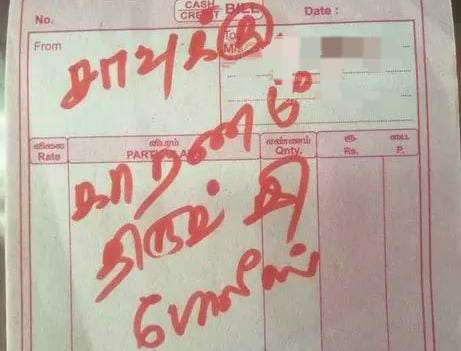 No. CASH CREDIT BILL Date :
From To M/s
சாவுக்கு
காரணம்
விலை விபரம் எண்ணம் ரூ. பை.
Rate Qnty. Rs. P.
திருமதி
போலீஸ்